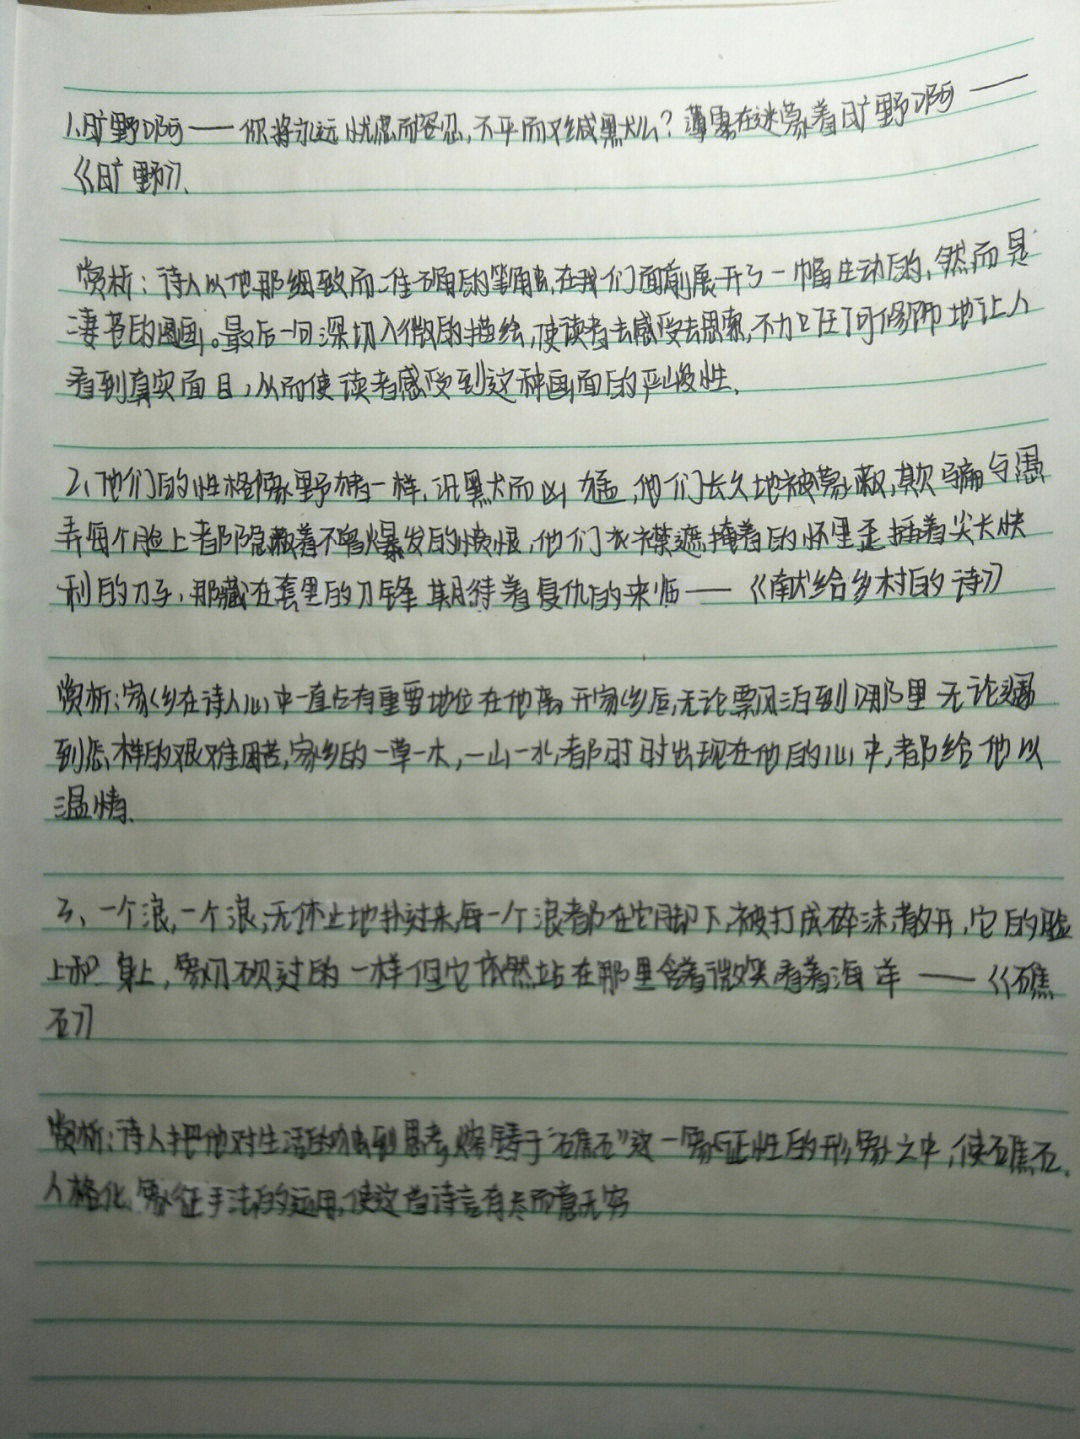 1、旷野啊——你将永远忧虑而容忍,不平而又缄默么?薄雾在迷蒙着旷野啊——
《旷野》、
赏析:诗人以他那细致而准确的笔触,在我们面前展开了一幅生动的,然而是
凄苦的图画。最后一句深切入微的描绘,使读者去感受去思索,不加任何修饰地让人
看到真实面目,从而使读者感受到这种画面的严峻性、
2、他们的性格像野猪一样,沉默而凶猛,他们长久地被蒙蔽,欺骗与愚
弄每个脸上都隐蔽着不曾爆发的愤恨,他们衣襟遮掩着的怀里歪插着尖长快
利的刀子,那藏在套里的刀锋期待着复仇的来临——《献给乡村的诗》
赏析:家乡在诗人心中一直占有重要地位在他离开家乡后,无论飘泊到哪里无论遇
到怎样的艰难困苦,家乡的一草一木,一山一水,都时时出现在他的心中,都给他以
温情、
3、一个浪,一个浪,无休止地扑过来,每一个浪都在它脚下,被打成碎沫,散开,它的脸
上和身上,像刀砍过的一样但它依然站在那里含着微笑看着海洋——《礁
石》
赏析:诗人把他对生活的 思考,熔铸于“礁石”这一象征性的形象之中,使礁石
人格化,象征手法的运用,使这首诗言有尽而意无穷